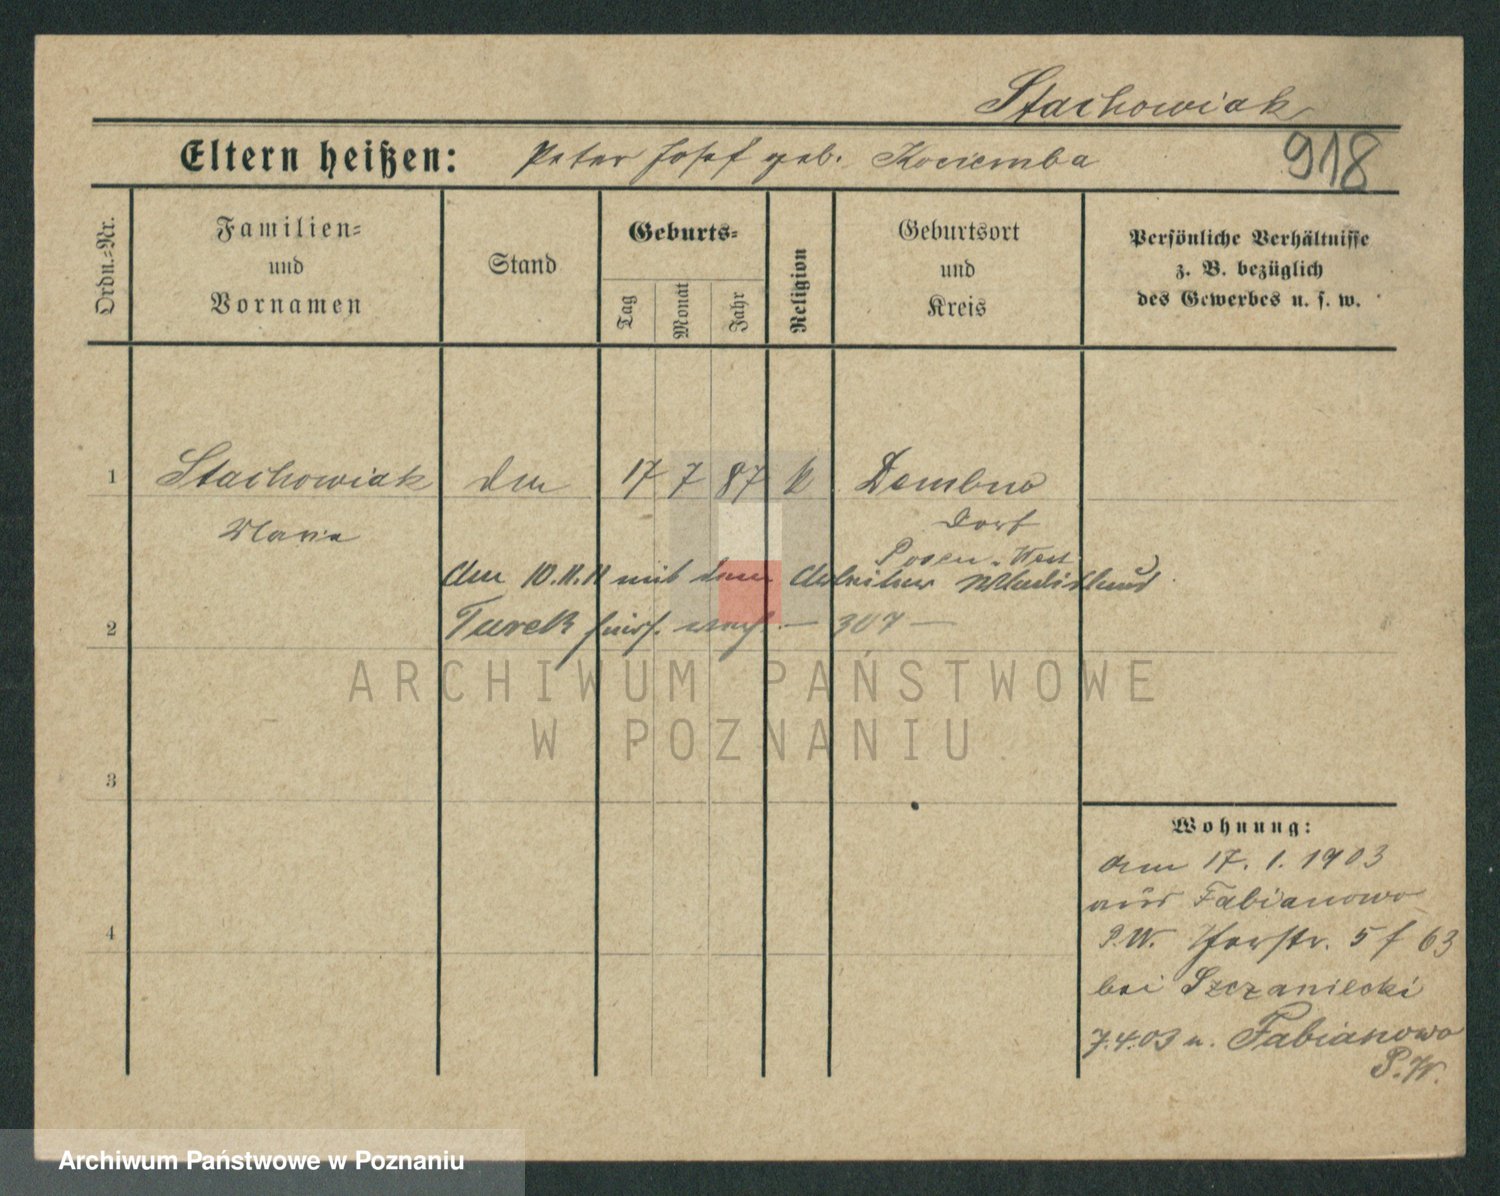 Stachowiak
918
Eltern heißen: Peter Josef geb. Kociemba
Ordn.-Nr.
Familien-
und
Vornamen
Stand
Geburts-
Tag
Monat
Jahr
Religion
Geburtsort
und
Kreis
Persönliche Verhältnisse
z. B. bezüglich
des Gewerbes u. s. w.
1 Stachowiak 17 7 87 k Dembno
Maria
Dorf
Posen-West
am 10.11.11 mit dem Arbeiter
2 Turek — 307 —
ARCHIWUM PAŃSTWOWE
W POZNANIU
3
Wohnung:
am 17. 1. 1903
aus Fabianowo
P.W. 5 f 63
4
bei Szczaniecki
7.4.03 n. Fabianowo
P.W.
Archiwum Państwowe w Poznaniu